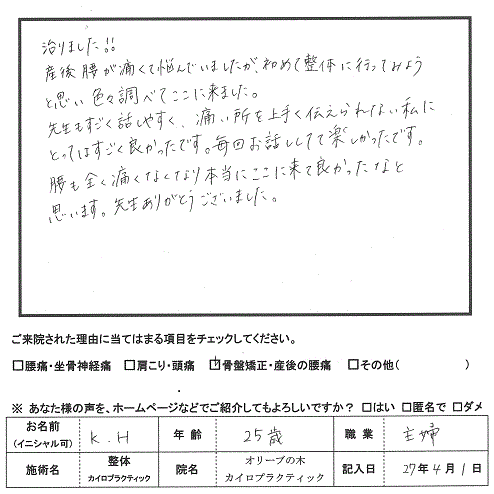 治りました!!
産後腰が痛くて悩んでいましたが、初めて整体に行ってみよう
と思い色々調べてここに来ました。
先生もすごく話しやすく、痛い所を上手く伝えられない私に
とってはすごく良かったです。毎回お話ししてて楽しかったです。
腰も全く痛くなくなり本当にここに来て良かったなと
思います。先生ありがとうございました。
ご来院された理由に当てはまる項目をチェックしてください。
□腰痛・坐骨神経痛 □肩こり・頭痛 ☑骨盤矯正・産後の腰痛 □その他( )
※ あなた様の声を、ホームページなどでご紹介してもよろしいですか? □はい □匿名で □ダメ
お名前 (イニシャル可) K.H 年齢 25歳 職業 主婦
施術名 整体 カイロプラクティック 院名 オリーブの木 カイロプラクティック 記入日 27年4月1日